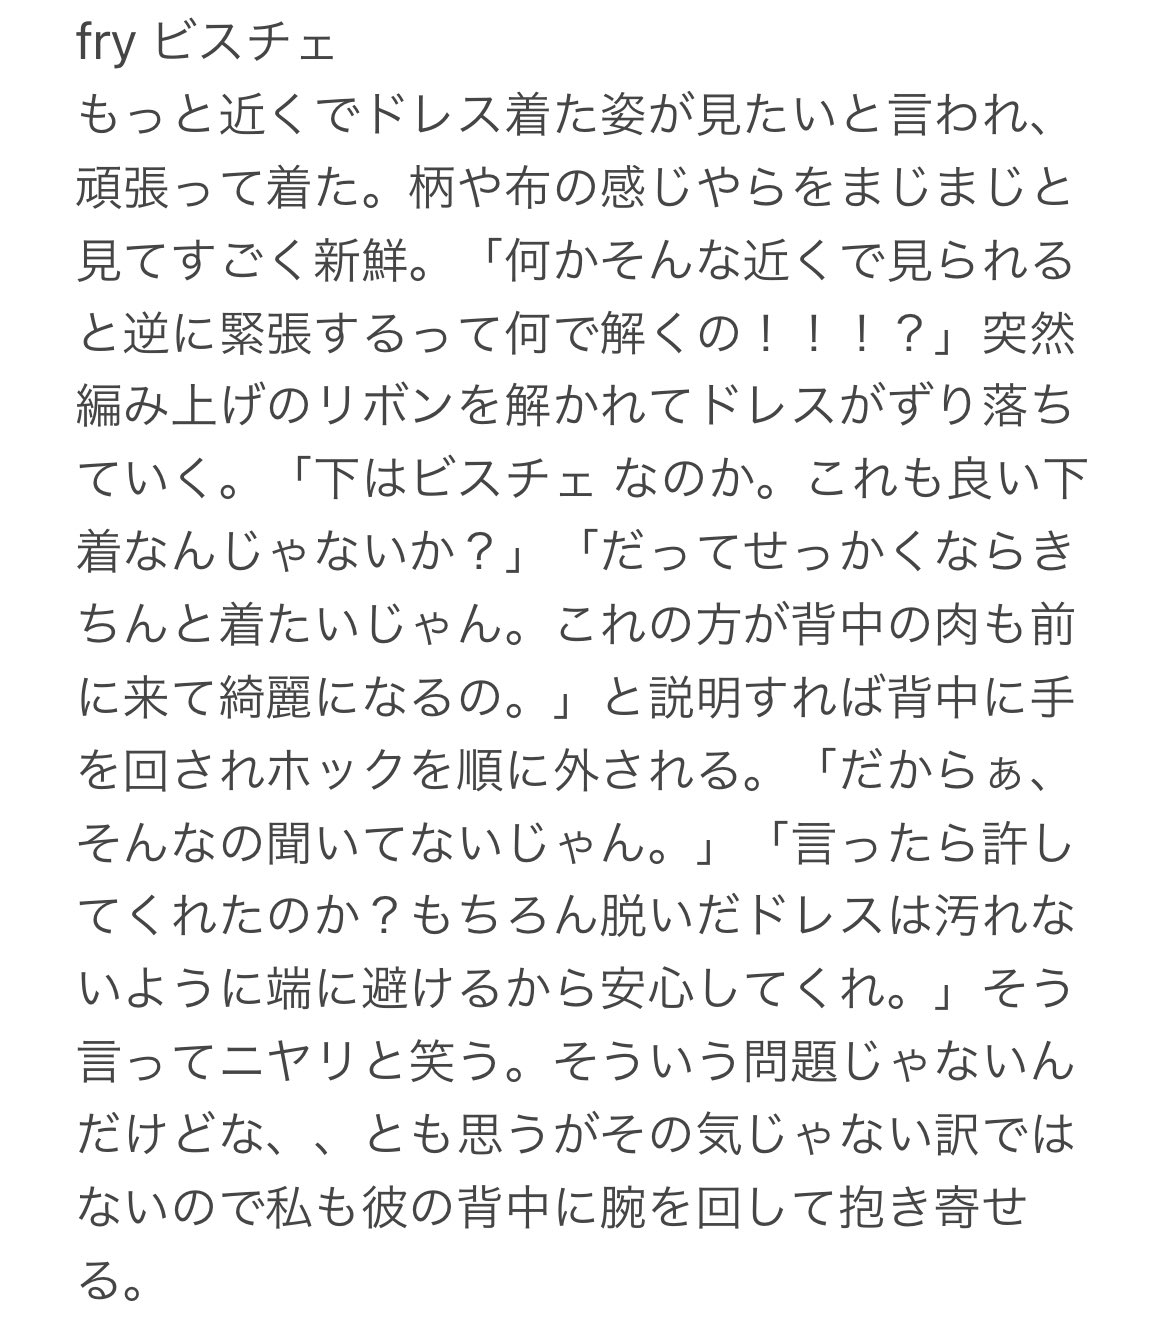 fry ビスチェ
もっと近くでドレス着た姿が見たいと言われ、
頑張って着た。柄や布の感じやらをまじまじと
見てすごく新鮮。「何かそんな近くで見られる
と逆に緊張するって何で解くの！！！？」突然
編み上げのリボンを解かれてドレスがずり落ち
ていく。「下はビスチェ なのか。これも良い下
着なんじゃないか？」「だってせっかくならき
ちんと着たいじゃん。これの方が背中の肉も前
に来て綺麗になるの。」と説明すれば背中に手
を回されホックを順に外される。「だからぁ、
そんなの聞いてないじゃん。」「言ったら許し
てくれたのか？もちろん脱いだドレスは汚れな
いように端に避けるから安心してくれ。」そう
言ってニヤリと笑う。そういう問題じゃないん
だけどな、、とも思うがその気じゃない訳では
ないので私も彼の背中に腕を回して抱き寄せ
る。